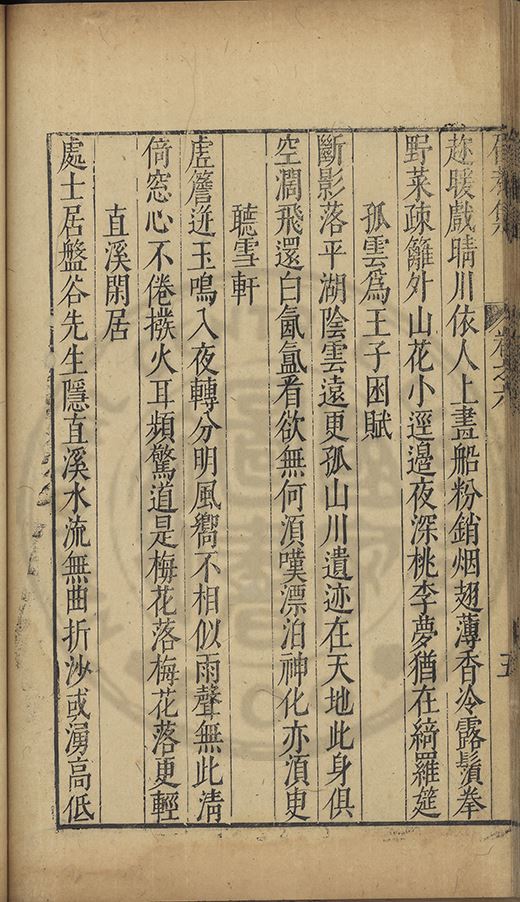 卷之六
五
趂暖戲晴川依人上畫船粉銷烟翅薄香冷露鬚拳
野菜疎籬外山花小逕邊夜深桃李夢猶在綺羅筵
孤雲為王子困賦
斷影落平湖陰雲遠更孤山川遺迹在天地此身俱
空濶飛還白氤氳看欲無何湏嘆漂泊神化亦湏臾
聽雪軒
虚簷迸玉鳴入夜轉分明風嚮不相似雨聲無此清
倚窓心不倦撥火耳頻驚道是梅花落梅花落更輕
直溪閑居
處士居盤谷先生隱直溪水流無曲折沙或湧高低